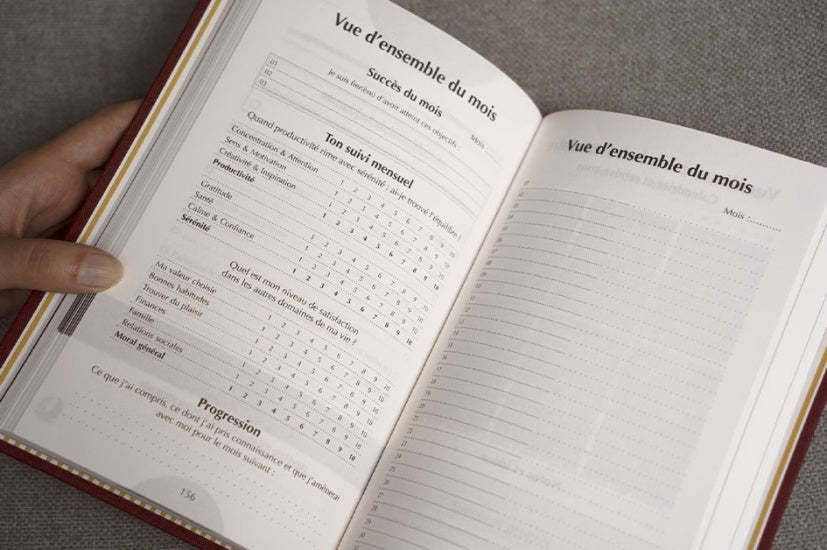 Vue d'ensemble du mois
Mois :
Succès du mois
Je suis fier(ère) d'avoir atteint ces objectifs :
01
02
03
Ton suivi mensuel
Quand productivité rime avec sérénité : ai-je trouvé l'équilibre !
Concentration & Attention 1 2 3 4 5 6 7 8 9 10
Sens & Motivation 1 2 3 4 5 6 7 8 9 10
Créativité & Inspiration 1 2 3 4 5 6 7 8 9 10
Productivité 1 2 3 4 5 6 7 8 9 10
Gratitude 1 2 3 4 5 6 7 8 9 10
Santé 1 2 3 4 5 6 7 8 9 10
Calme & Confiance 1 2 3 4 5 6 7 8 9 10
Sérénité 1 2 3 4 5 6 7 8 9 10
Quel est mon niveau de satisfaction
dans les autres domaines de ma vie ?
Ma valeur choisie 1 2 3 4 5 6 7 8 9 10
Bonnes habitudes 1 2 3 4 5 6 7 8 9 10
Trouver du plaisir 1 2 3 4 5 6 7 8 9 10
Finances 1 2 3 4 5 6 7 8 9 10
Famille 1 2 3 4 5 6 7 8 9 10
Relations sociales 1 2 3 4 5 6 7 8 9 10
Moral général 1 2 3 4 5 6 7 8 9 10
Progression
Ce que j'ai compris, ce dont j'ai pris connaissance et que j'amènerai
avec moi pour le mois suivant :
156
Vue d'ensemble du mois
Mois :